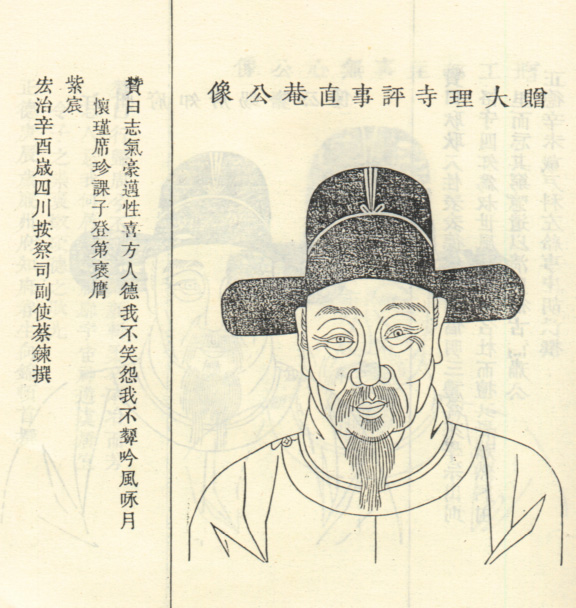 贈大理寺評事直菴公像
贊曰志氣豪邁性喜方人德我不笑怨我不顰吟風咏月
懷瑾席珍課子登第褒膺
紫宸
宏治辛酉歲四川按察司副使蔡鍊撰